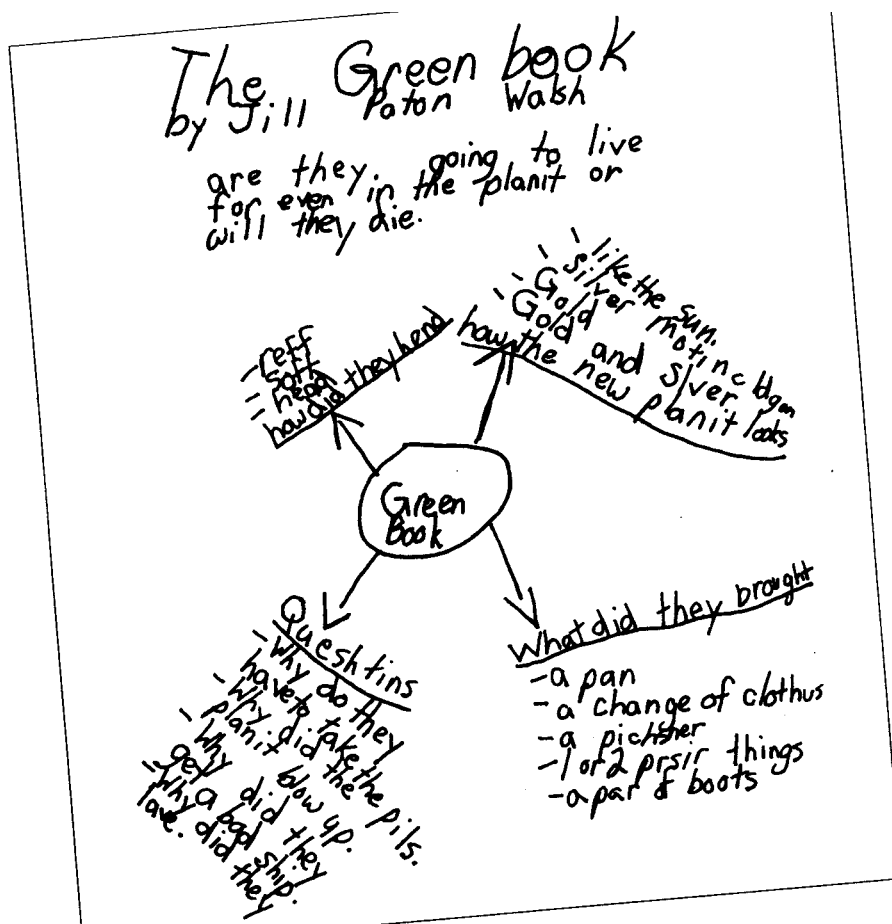 The Green book
by Jill Paton Walsh
are they going to live
for even in the planit or
will they die.
- like the sun.
- silver motinc
- Gold
- Gold and silver.
how the new planit looks
- reff
- soft
how did they
Green
Book
Queshtins
- Why do they
have to take the pils.
- Why did the
planit blow up.
- Why did they
gey a bad ship.
- Why did they
lave.
What did they brought
- a pan
- a change of clothus
- a pichsher
- 1 or 2 prsir things
- a par of boots